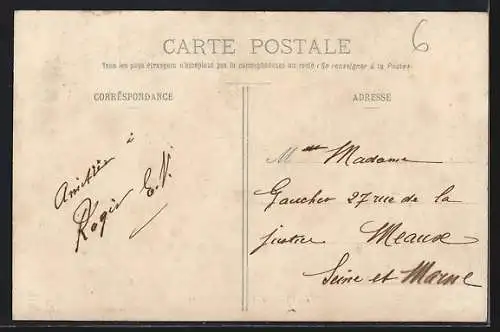 6
CARTE POSTALE
Tous les pays étrangers n'acceptent pas la correspondance au recto (Se renseigner à la Poste).
CORRESPONDANCE
ADRESSE
Amitiés à
Roger E.V.
Madame
Gaucher 27 rue de la
justice Meaux
Seine et Marne